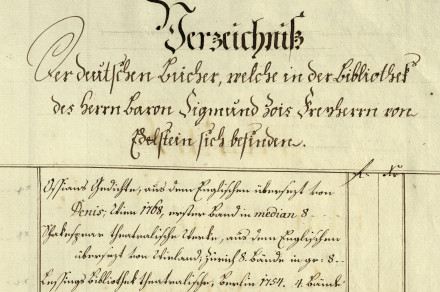 Verzeichniß
Der deutschen Bücher, welche in der Bibliothek
des Herrn Baron Sigmund Zois Freyherrn von
Edelstein sich befinden.
f. Xr
Ossians Gedichte, aus dem Englischen übersezt von
Denis, Wien 1768, erster Band in median 8
Shakespear theatralische Werke, aus dem Englischen
übersezt von Wieland, Zürich 8. Bände in gr: 8
Lessings Bibliothek theatralische, Berlin 1754. 4. Bände